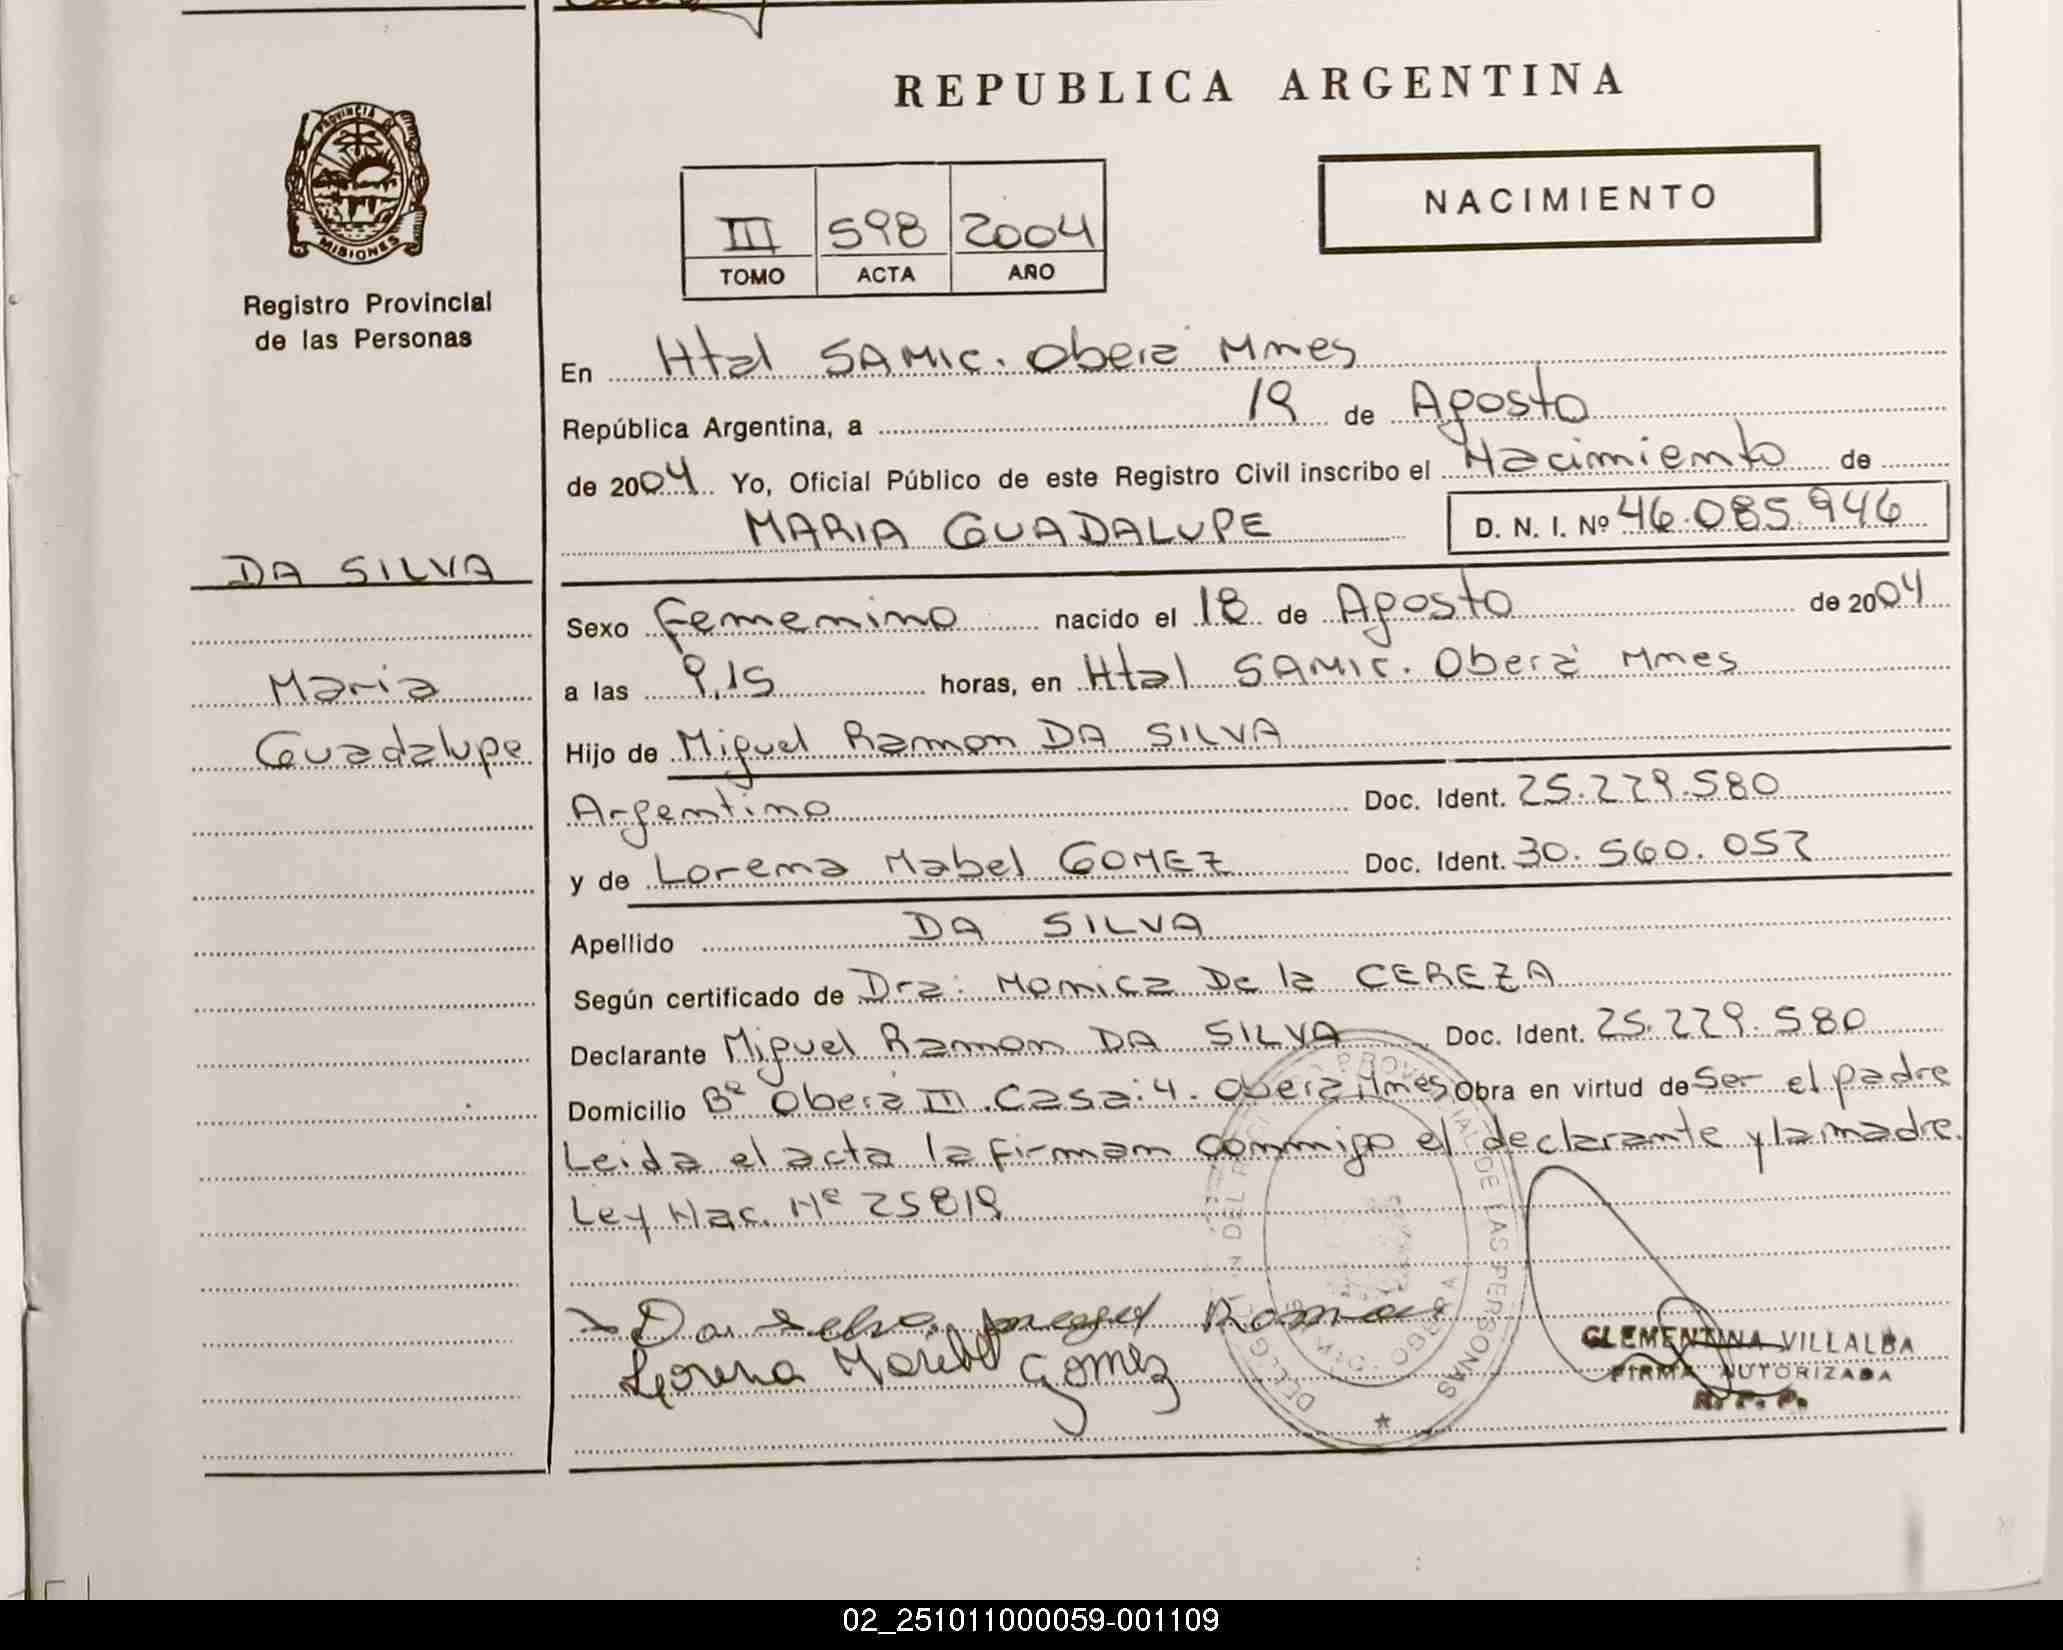 REPUBLICA ARGENTINA
PROVINCIA DE
MISIONES
Registro Provincial
de las Personas
III 598 2004
TOMO ACTA AÑO
NACIMIENTO
En Htal SAMIC. Oberá Mnes
República Argentina, a 19 de Agosto
de 2004 Yo, Oficial Público de este Registro Civil inscribo el Nacimiento de
MARIA GUADALUPE D. N. I. Nº 46.085.946
DA SILVA
Maria
Guadalupe
Sexo Femenino nacido el 18 de Agosto de 2004
a las 9,15 horas, en Htal SAMIC. Oberá Mnes
Hijo de Miguel Ramon DA SILVA
Argentino Doc. Ident. 25.229.580
y de Lorena Mabel GOMEZ Doc. Ident. 30.560.057
Apellido DA SILVA
Según certificado de Dra: Monica De la CEREZA
Declarante Miguel Ramon DA SILVA Doc. Ident. 25.229.580
Domicilio Bº Oberá III. Casa: 4. Oberá Mnes Obra en virtud de Ser el padre
Leida el acta la firman conmigo el declarante y la madre.
Ley Nac. Nº 25819
Da Silva Miguel Ramon
Lorena Mabel Gomez
DELEG DEL REG PROVINCIAL DE LAS PERSONAS
OBERA
CLEMENTINA VILLALBA
FIRMA AUTORIZADA
R. P. P.
02_251011000059-001109